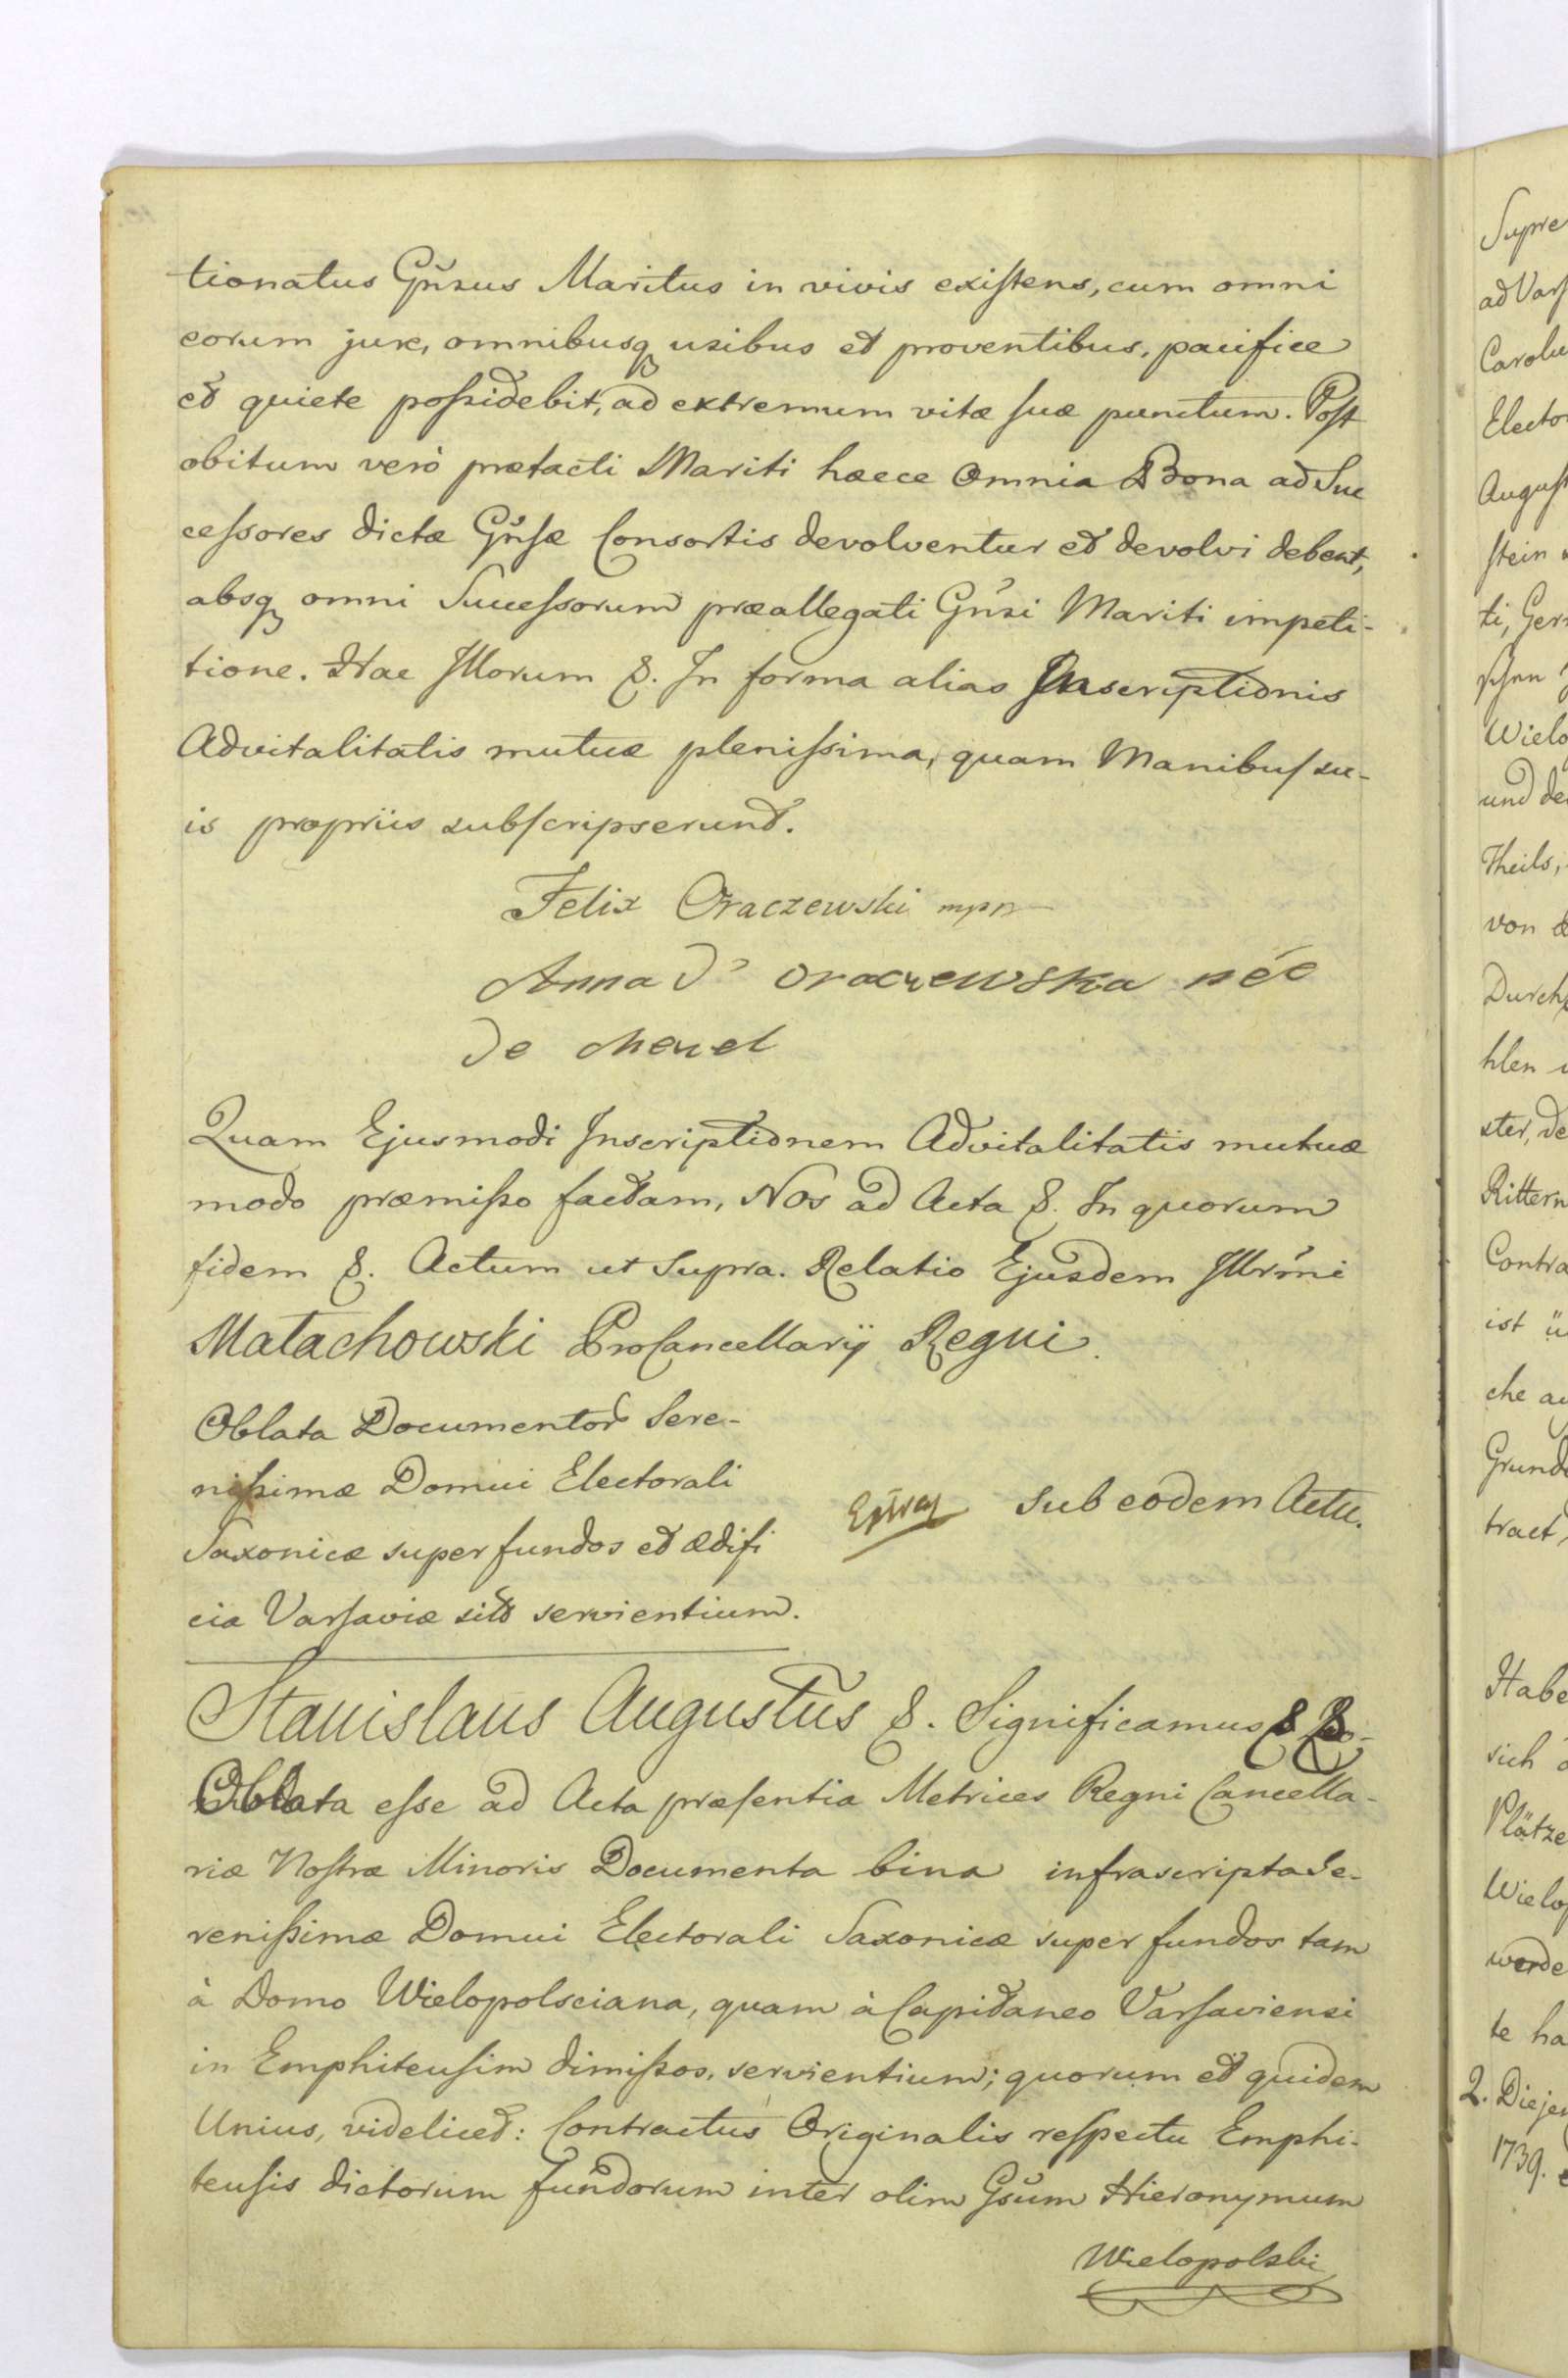 tionatus Gnsus Maritus in vivis existens, cum omni
eorum jure, omnibusq usibus et proventibus, pacifice
et quiete possidebit, ad extremum vitæ suæ punctum. Post
obitum verò prætacti Mariti hæece Omnia Bona ad Suc
cessores dictæ Gnsæ Consortis devolventur et devolvi debent,
absq omni Successorum præallegati Gnsi Mariti impeti-
tione. Hac Illorum &. In forma alias Inscriptionis
Advitalitatis mutuæ plenissima, quam Manibus su-
is propriis subscripserunt.
Felix Oraczewski mpp
Anna d' oraczewska née
de
Quam Ejusmodi Inscriptionem Advitalitatis mutuæ
modo præmisso factam, Nos ad Acta &. In quorum
fidem &. Actum ut Supra. Relatio Ejusdem Illrmi
Małachowski ProCancellarij Regni.
Oblata Documentor Sere-
nissimæ Domui Electorali
Saxonicæ super fundos et ædifi
cia Varsaviæ sita servientium.
sub eodem Actu.
Stanislaus Augustus &. Significamus &
Oblata esse ad Acta præsentia Metrices Regni Cancella-
riæ Nostræ Minoris Documenta bina infrascripta Se-
renissimæ Domui Electorali Saxonicæ super fundos tam
à Domo Wielopolsciana, quam à Capitaneo Varsaviensi
in Emphiteusim dimissos, servientium; quorum et quidem
Unius, videlicet: Contractus Originalis respectu Emphi-
teusis dictorum fundorum inter olim Gsum Hieronymum
Wielopolski
Supre
ad Vars
Carolu
Elector
August
stein
ti, Ger
schen
Wielo
und de
Theils,
von
Durch
hlen
ster, de
Rittern
Contra
ist ü
che au
Grund
tract,
Habe
sich
Plätze
Wielop
werde
te ha
2. Diejen
1739.